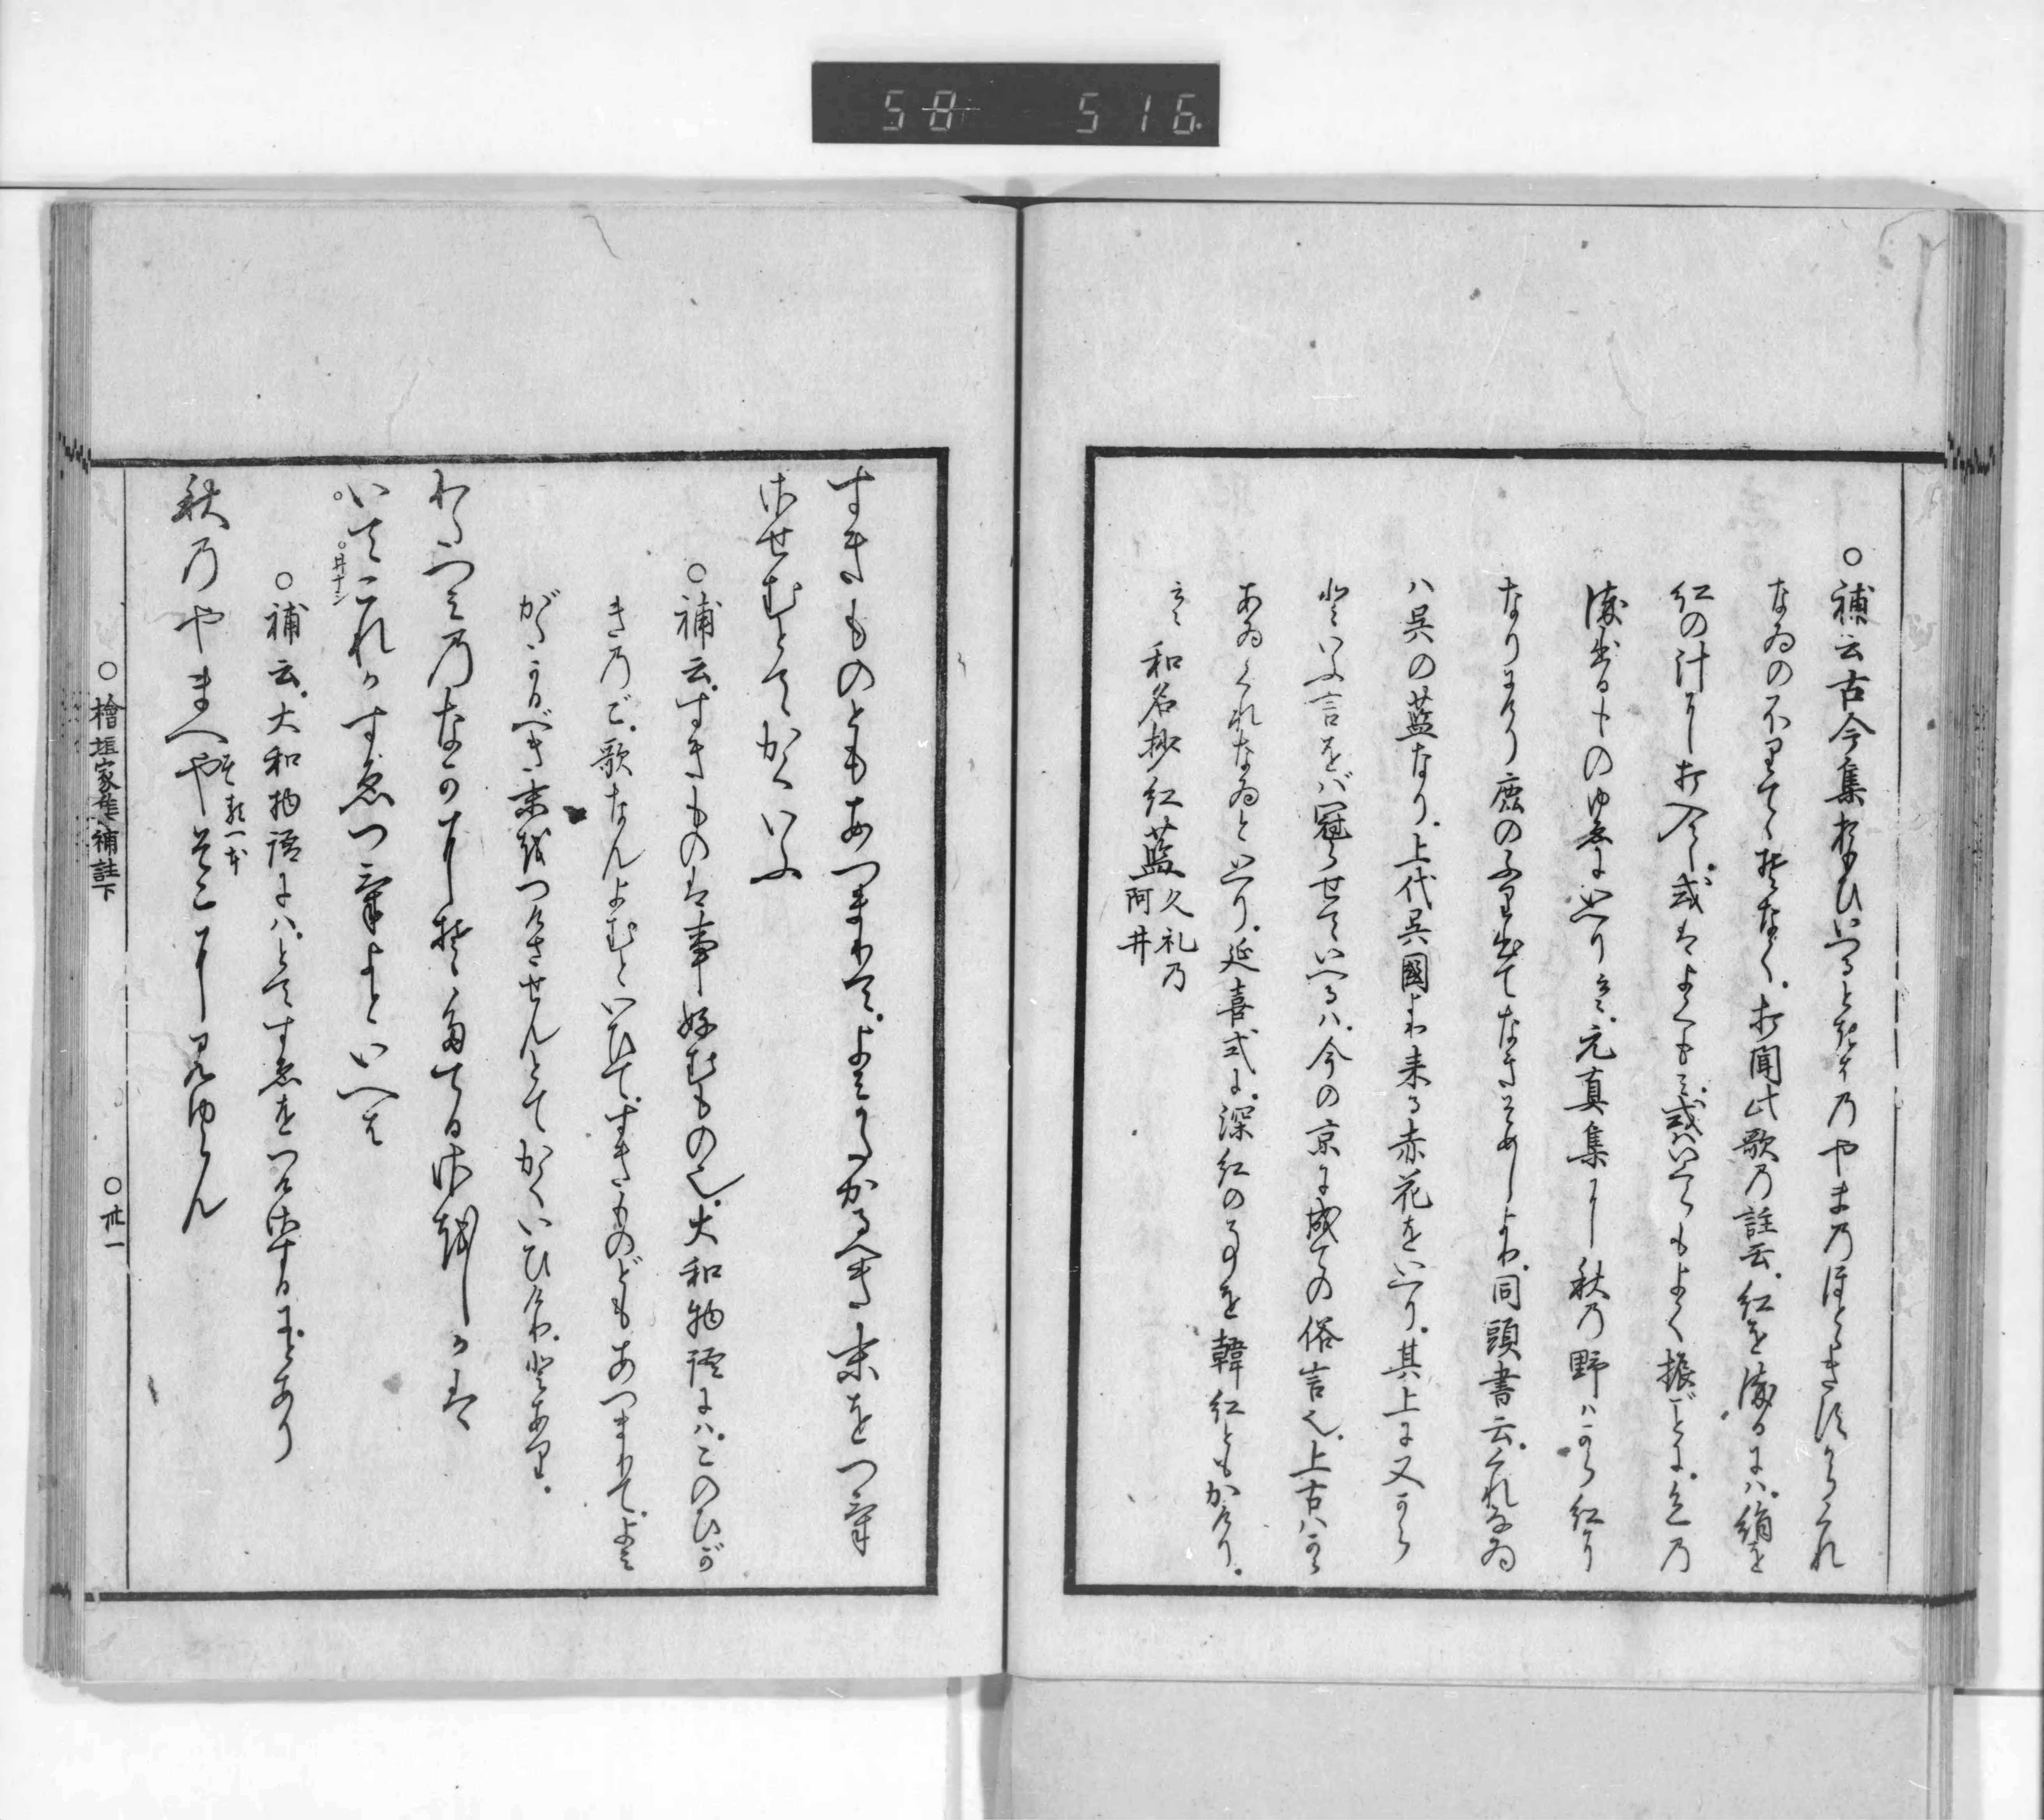 58 516
○補云古今集おもひいつるときはのやまのほとゝきすからくれ
なゐのふりてゝそなく。打聞此歌の註云。紅を染るには。絹を
紅の汁に打入て。或はよくもみ。或はいくつもよく振ことに。色の
染出るものゆゑにいへり云々。元真集に秋の野はから紅に
なりにけり鹿のふり出てなきそめしより。同頭書云。くれなゐ
ハ呉の藍なり。上代呉國より来る赤花をいへり。其上に又から
といふ言をバ冠らせていへるハ。今の京に成ての俗言也。上古ハから
あゐくれなゐといへり。延喜式に。深紅の事を韓紅ともかけり。
云々 和名抄紅藍久礼乃阿井
すきものともあつまりて。よみかたかるへき末をつけ
させむとてかくいふ
○補云。すきものは事好むもの也。大和物語にハ。このひが
きのご。歌なんよむといひて。すきものどもあつまりて。よみ
がたかるべき末をつけさせんとてかくいひけり。とあり。
わたつみのなかにそたてるさをしかは
いてこれかすゑつけよといへは
○井ナシ
○補云。大和物語にハ。とてすゑをつけさするに。とあり
秋のやまへやそこにみゆらん
そ 類一本
○檜垣家集補註下
○卅一